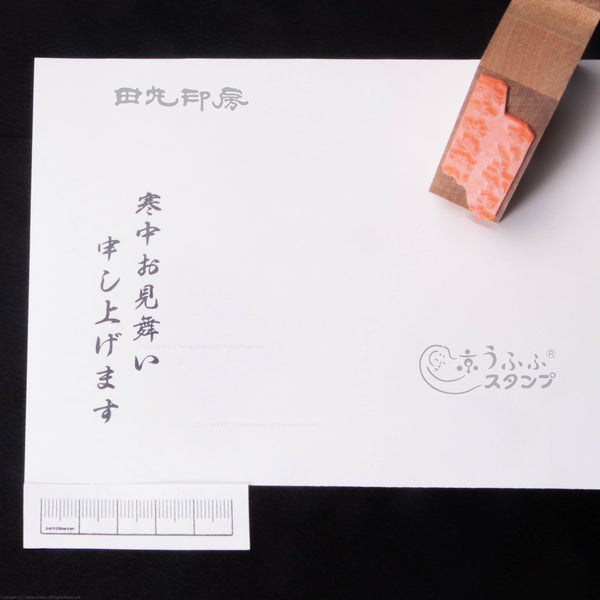 田丸印房
寒中お見舞い
申し上げます
京うふふ®
スタンプ
centimeter